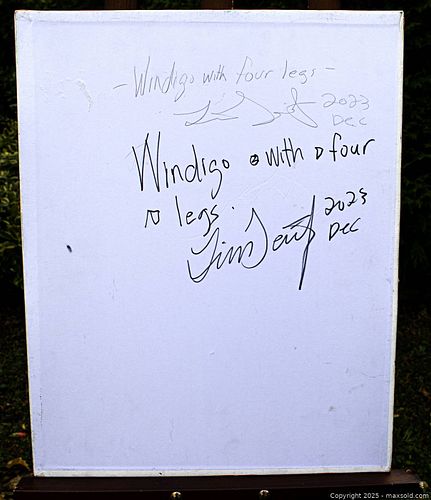 - Windigo with four legs -
2023
Dec
Windigo with four
legs.
Tim 2023
Dec
Copyright 2025 - maxsold.com